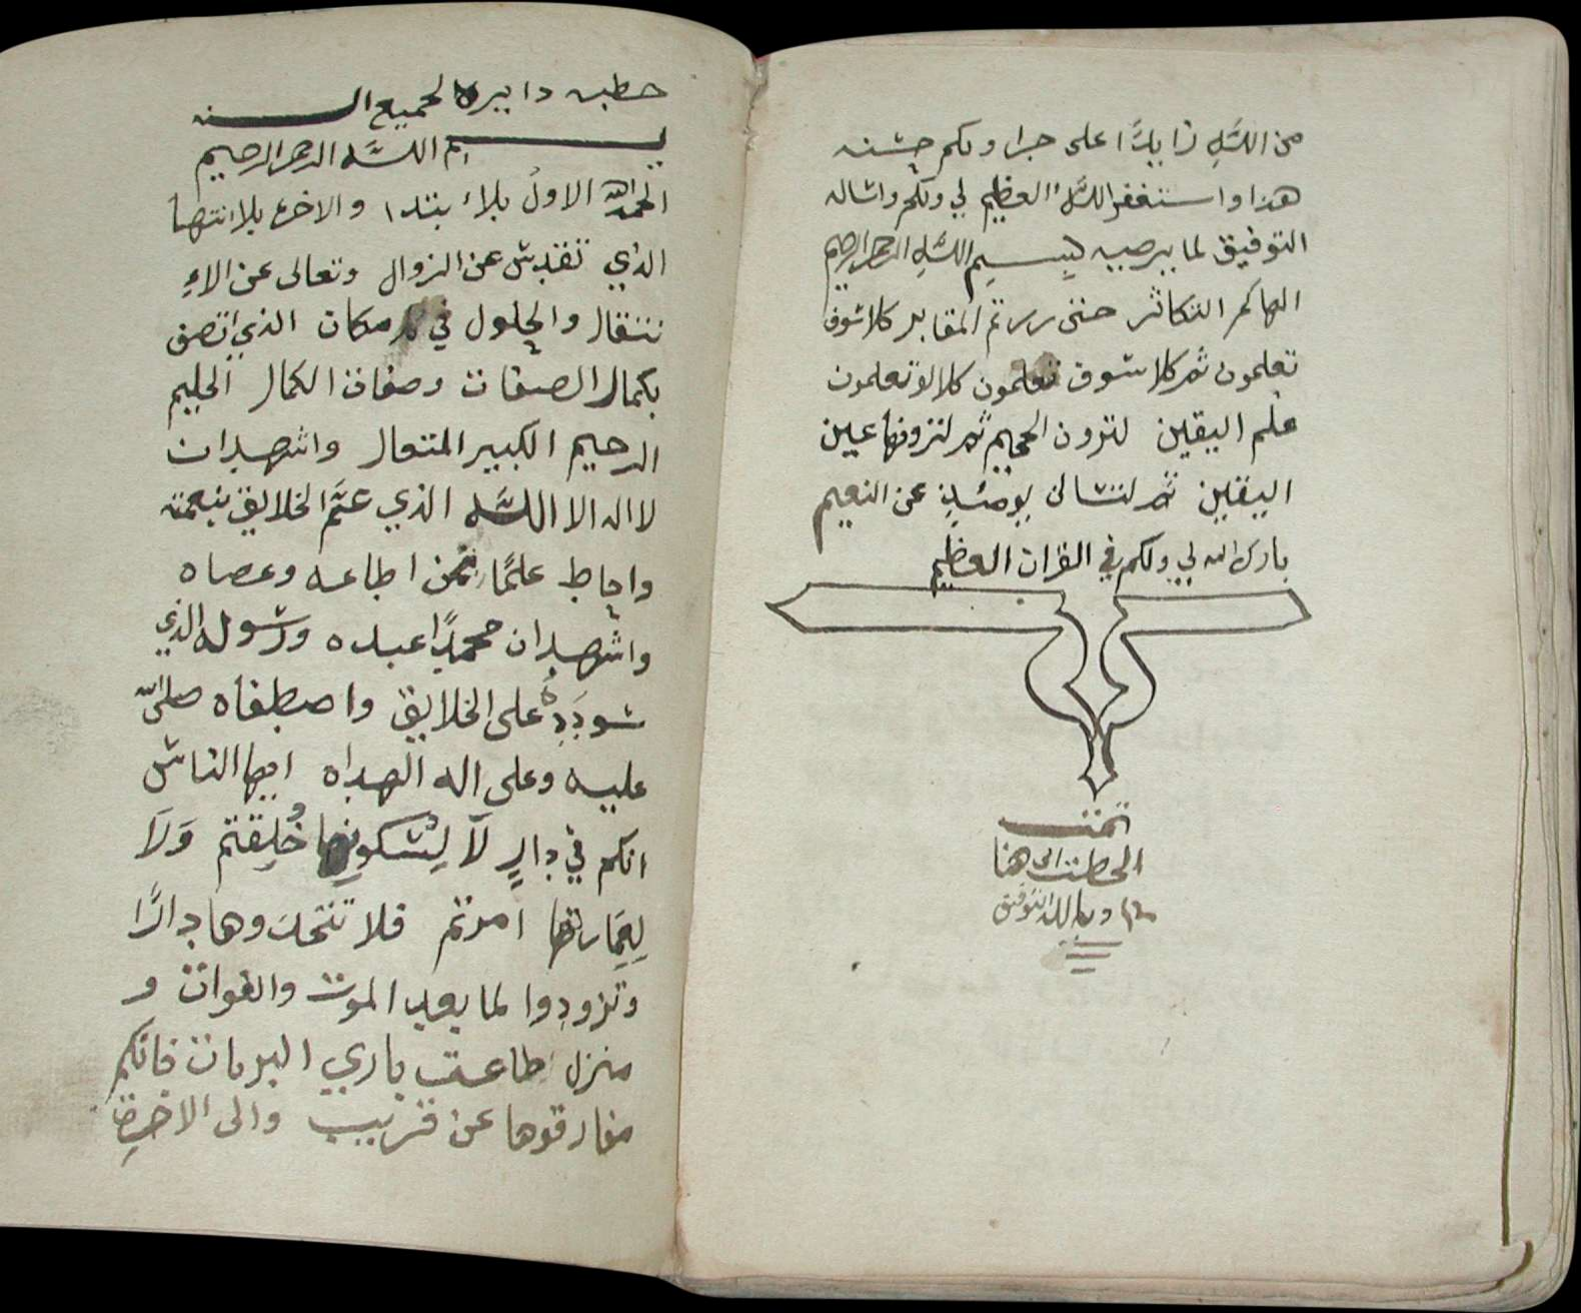 من الله زايدًا على جزا وبكم حشنه
هذا واستغفر الله العظيم لي ولكم واشاله
التوفيق لما يرضيه بسم الله الرحمن الرحيم
الهاكم التكاثر حتى زرتم المقابر كلا شوف
تعلمون ثم كلا شوف تعلمون كلا لو تعلمون
علم اليقين لترون الجحيم ثم لترونها عين
اليقين ثم لتشالن يومئذٍ عن النعيم
بارك الله لي ولكم في القران العظيم
تمت
الخطبت الى هنا
وبالله التوفيق
خطبه دايره لجميع السنه
بسم الله الرحمن الرحيم
الحمد لله الاول بلاء بتدا والاخر بلا انتها
الذي تقدش عن الزوال وتعالى عن الاءِ
نتقال والحلول في مكان الذي اتصف
بكمال الصفات وصفات الكمال الحليم
الرحيم الكبير المتعال واشهد ان
لا اله الا الله الذي عمَّ الخلايق بنعمته
واحاط علمًا بمن اطاعه وعصاه
واشهد ان محمدًا عبده ورشوله الذي
شوده على الخلايق واصطفاه صلى الله
عليه وعلى اله الهداه ايها الناش
انكم في دارٍ لا لِشكونها خُلِقتم وَلَا
لِعِمَارتها امرتم فلا تتخذوها دارًا
وتزودوا لما بعد الموت والفوات و
منزل طاعت باري البريات فانكم
مفارقوها عن قريب والى الاخرة